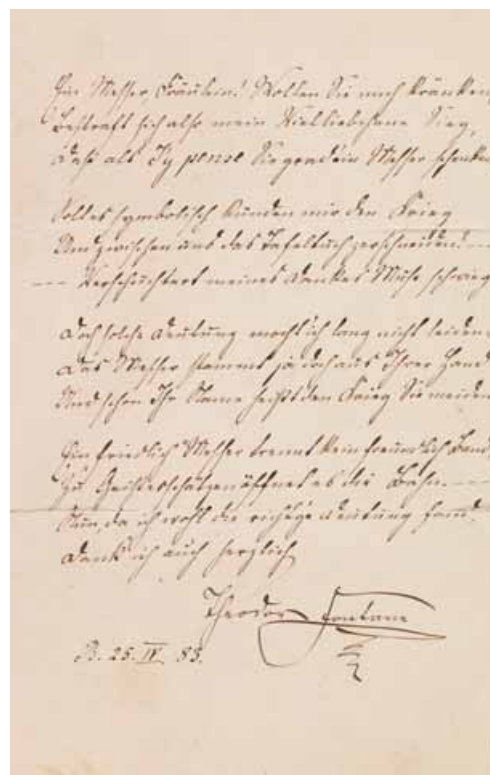 Ein Messer, Fräulein! Wollen Sie mich kränken,
Bestraft sich also mein Vielliebchens Sieg,
Daß als J'y pense Sie grad ein Messer schenken
Soll es symbolisch künden mir den Krieg
Und zwischen uns das Tafeltuch zerschneiden? --
-- Verschüchtert meines Dankes Muse schwieg
Doch solche Deutung mocht' ich lang nicht leiden.
Das Messer stammt ja doch aus Ihrer Hand
Und schon Ihr Name heißt den Krieg Sie meiden
Ein friedlich Messer trennt kein freundlich Band,
Zu Geistesschätzen öffnet es die Bahn. --
Nun, da ich wohl die richt'ge Deutung fand,
Dank' ich auch herzlich
Theodor Fontane
B. 25. IV. 83.